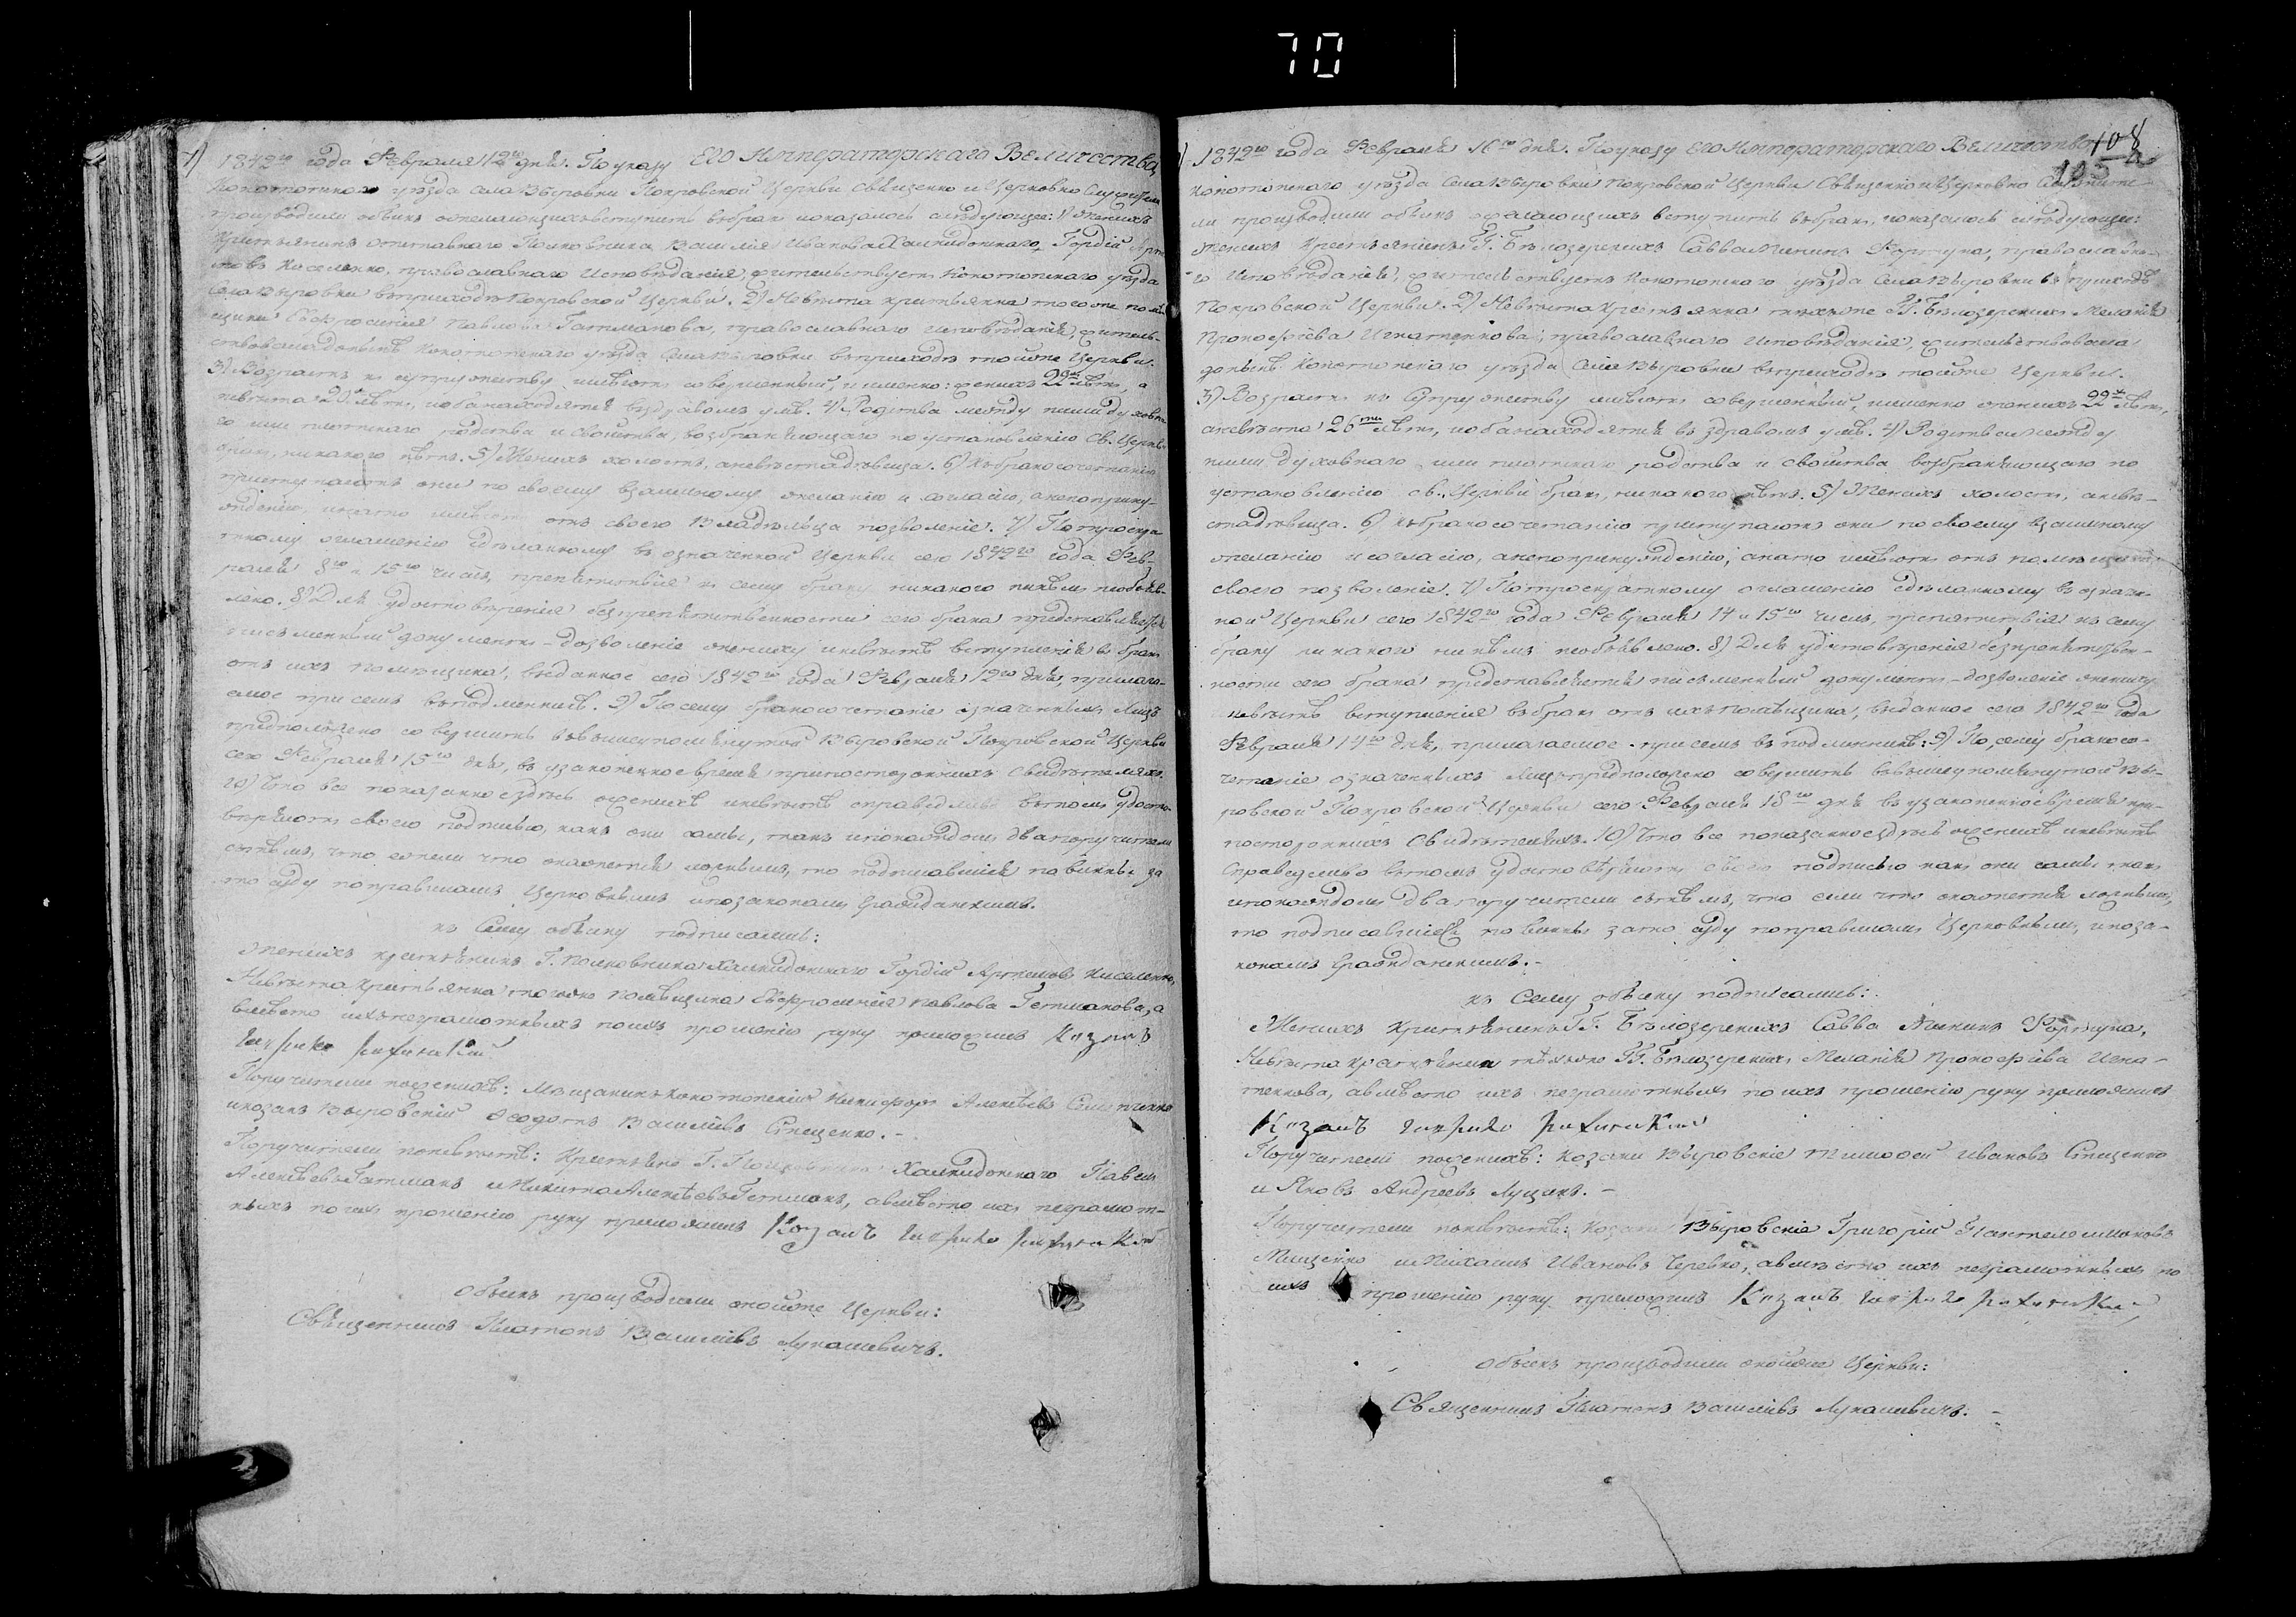 70
1842го года Февраля 12го дня. По указу Его Императорскаго Величества,
Конотопскаго уѣзда села Вѣровки Покровской Церкви Священно и Церковно Служители
производили обыскъ о желающихъ вступить въ бракъ и оказалось слѣдующее: 1) Женихъ
крестьянинъ отставнаго Полковника Василія Иванова Халкидонскаго, Гордій
Киселенко, православнаго исповѣданія, жительствуетъ Конотопскаго уѣзда
села Вѣровки въ приходѣ Покровской Церкви. 2) Невѣста крестьянка того же помѣ-
щика Евфросинія Павлова Гетманова, православнаго исповѣданія, житель-
ствовала донынѣ Конотопскаго уѣзда села Вѣровки въ приходѣ тойже Церкви.
3) Возрастъ къ супружеству имѣютъ совершенный, и именно: женихъ 22 лѣтъ, а
невѣста 20 лѣтъ, и оба находятся въ здравомъ умѣ. 4) Родства между ними духовна-
го или плотскаго родства и свойства, возбраняющаго по установленію Св. Церкви
бракъ, никакого нѣтъ. 5) Женихъ холостъ, а невѣста дѣвица. 6) Къ бракосочетанію
приступаютъ они по своему взаимному желанію и согласію, а не по прину-
жденію, и на то имѣютъ отъ своего Владѣльца позволеніе. 7) По троекра-
тному оглашенію сдѣланному въ означенной Церкви сего 1842го года Фев-
раля 8го и 15го числъ, препятствія къ сему браку никакого никѣмъ необъяв-
лено. 8) Для удостовѣренія безпрепятственности сего брака представляется
письменный документъ - дозволеніе жениху и невѣстѣ вступленія въ бракъ
отъ ихъ помѣщика, выданное сего 1842го года Февраля 12го дня, прилага-
емое при семъ въ подлинникѣ. 9) По сему бракосочетаніе означенныхъ лицъ
предположено совершить въ вышеупомянутой Вѣровской Покровской Церкви
сего Февраля 15го дня, въ узаконенное время при постороннихъ свидѣтеляхъ.
10) Что все показанное здѣсь о женихѣ и невѣстѣ справедливо въ томъ удосто-
вѣряютъ своею подписью, какъ они сами, такъ и по каждомъ два поручителя
съ тѣмъ, что если что окажется ложнымъ, то подписавшіеся повинны за
то суду по правиламъ Церковнымъ и по законамъ Гражданскимъ.
къ Сему обыску подписались:
Женихъ крестьянинъ Г. Полковника Халкидонскаго Гордій Киселенко,
Невѣста крестьянка того же помѣщика Евфросинія Павлова Гетманова, а
вмѣсто ихъ неграмотныхъ по ихъ прошенію руку приложилъ Козакъ
Поручители по женихѣ: мѣщанинъ Конотопскій Никифоръ Алексѣевъ
и козакъ Вѣровскій Ѳеодотъ Василіевъ Спеценко.-
Поручители по невѣстѣ: крестьяне Г. Полковника Халкидонскаго Павелъ
Алексѣевъ Гетманъ и Никита Алексѣевъ Гетманъ, а вмѣсто ихъ неграмот-
ныхъ по ихъ прошенію руку приложилъ Козакъ
Обыскъ производили тойже Церкви:
Священникъ Платонъ Василіевъ Лукашевичъ.
108
105
1842го года Февраля 16го дня. По указу Его Императорскаго Величества
Конотопскаго уѣзда села Вѣровки Покровской Церкви Священно и Церковно Служите-
ли производили обыскъ о желающихъ вступить въ бракъ, и оказалось слѣдующее:
Женихъ крестьянинъ Г.Г. Бѣлозерскихъ Савва Фортуна, православна-
го исповѣданія, жительствуетъ Конотопскаго уѣзда села Вѣровки въ приходѣ
Покровской Церкви. 2) Невѣста крестьянка тѣхъ же Г.Г. Бѣлозерскихъ Меланія
Прокофіева Игнатенкова, православнаго исповѣданія, жительствовала
донынѣ Конотопскаго уѣзда села Вѣровки въ приходѣ тойже Церкви.
3) Возрастъ къ супружеству имѣютъ совершенный, именно женихъ 22 лѣтъ,
а невѣста 26ти лѣтъ, и оба находятся въ здравомъ умѣ. 4) Родства между
ними духовнаго или плотскаго родства и свойства возбраняющаго по
установленію св. Церкви бракъ, никакого нѣтъ. 5) Женихъ холостъ, а невѣ-
ста дѣвица. 6) Къ бракосочетанію приступаютъ они по своему взаимному
желанію и согласію, а не по принужденію, а на то имѣютъ отъ помѣщика
своего позволеніе. 7) По троекратному оглашенію сдѣланному въ означен-
ной Церкви сего 1842го года Февраля 14 и 15го числъ, препятствія къ сему
браку никакого никѣмъ необъявлено. 8) Для удостовѣренія безпрепятствен-
ности сего брака представляется письменный документъ - дозволеніе жениху
и невѣстѣ вступленія въ бракъ отъ ихъ помѣщика, выданное сего 1842го года
Февраля 14го дня, прилагаемое при семъ въ подлинникѣ: 9) По сему бракосо-
четаніе означенныхъ лицъ предположено совершить въ вышеупомянутой Вѣ-
ровской Покровской Церкви сего Февраля 18го дня въ узаконенное время при
постороннихъ свидѣтеляхъ. 10) Что все показанное здѣсь о женихѣ и невѣстѣ
справедливо въ томъ удостовѣряютъ своею подписью какъ они сами, такъ
и по каждомъ два поручителя съ тѣмъ, что если что окажется ложнымъ,
то подписавшіеся повинны за то суду по правиламъ Церковнымъ, и по за-
конамъ Гражданскимъ.-
къ Сему обыску подписались:
Женихъ крестьянинъ Г.Г. Бѣлозерскихъ Савва Фортуна,
Невѣста крестьянка тѣхъ же Г.Г. Бѣлозерскихъ Меланія Прокофіева Игна-
тенкова, а вмѣсто ихъ неграмотныхъ по ихъ прошенію руку приложилъ
Козакъ
Поручители по женихѣ: козаки Вѣровскіе Тимоѳей Ивановъ Спеценко
и Яковъ Андреевъ Луцикъ.-
Поручители по невѣстѣ: козаки Вѣровскіе Григорій Пантелеимоновъ
Мищенко и Михаилъ Ивановъ Черевко, а вмѣсто ихъ неграмотныхъ по
ихъ прошенію руку приложилъ Козакъ
Обыскъ производили тойже Церкви:
Священникъ Платонъ Василіевъ Лукашевичъ.-